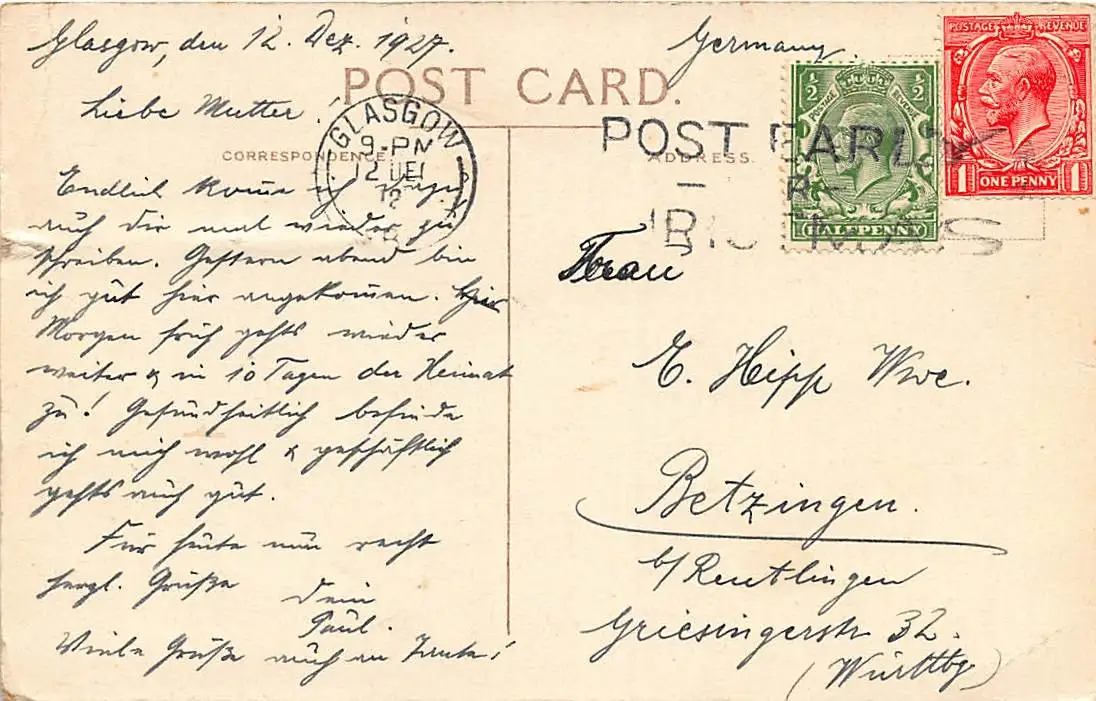 Glasgow, den 12. Dez. 1927.
Liebe Mutter!
POST CARD.
CORRESPONDENCE.
ADDRESS.
Endlich komme ich
auch dir mal wieder zu
schreiben. Gestern abend bin
ich gut hier angekommen.
Morgen früh gehts wieder
weiter & in 10 Tagen der Heimat
zu! Gesundheitlich befinde
ich mich wohl & geschäftlich
gehts auch gut.
Für heute nun recht
herzl. Grüße
Dein
Paul.
Viele Grüße auch an Tante!
Germany.
Frau
E. Hipp Wwe.
Betzingen.
b/Reutlingen
Griesingerstr 32.
(Württbg)
GLASGOW
9-PM
12 DE
POST EARLY
POSTAGE REVENUE
1/2 1/2
HALFPENNY
POSTAGE REVENUE
1 ONE PENNY 1